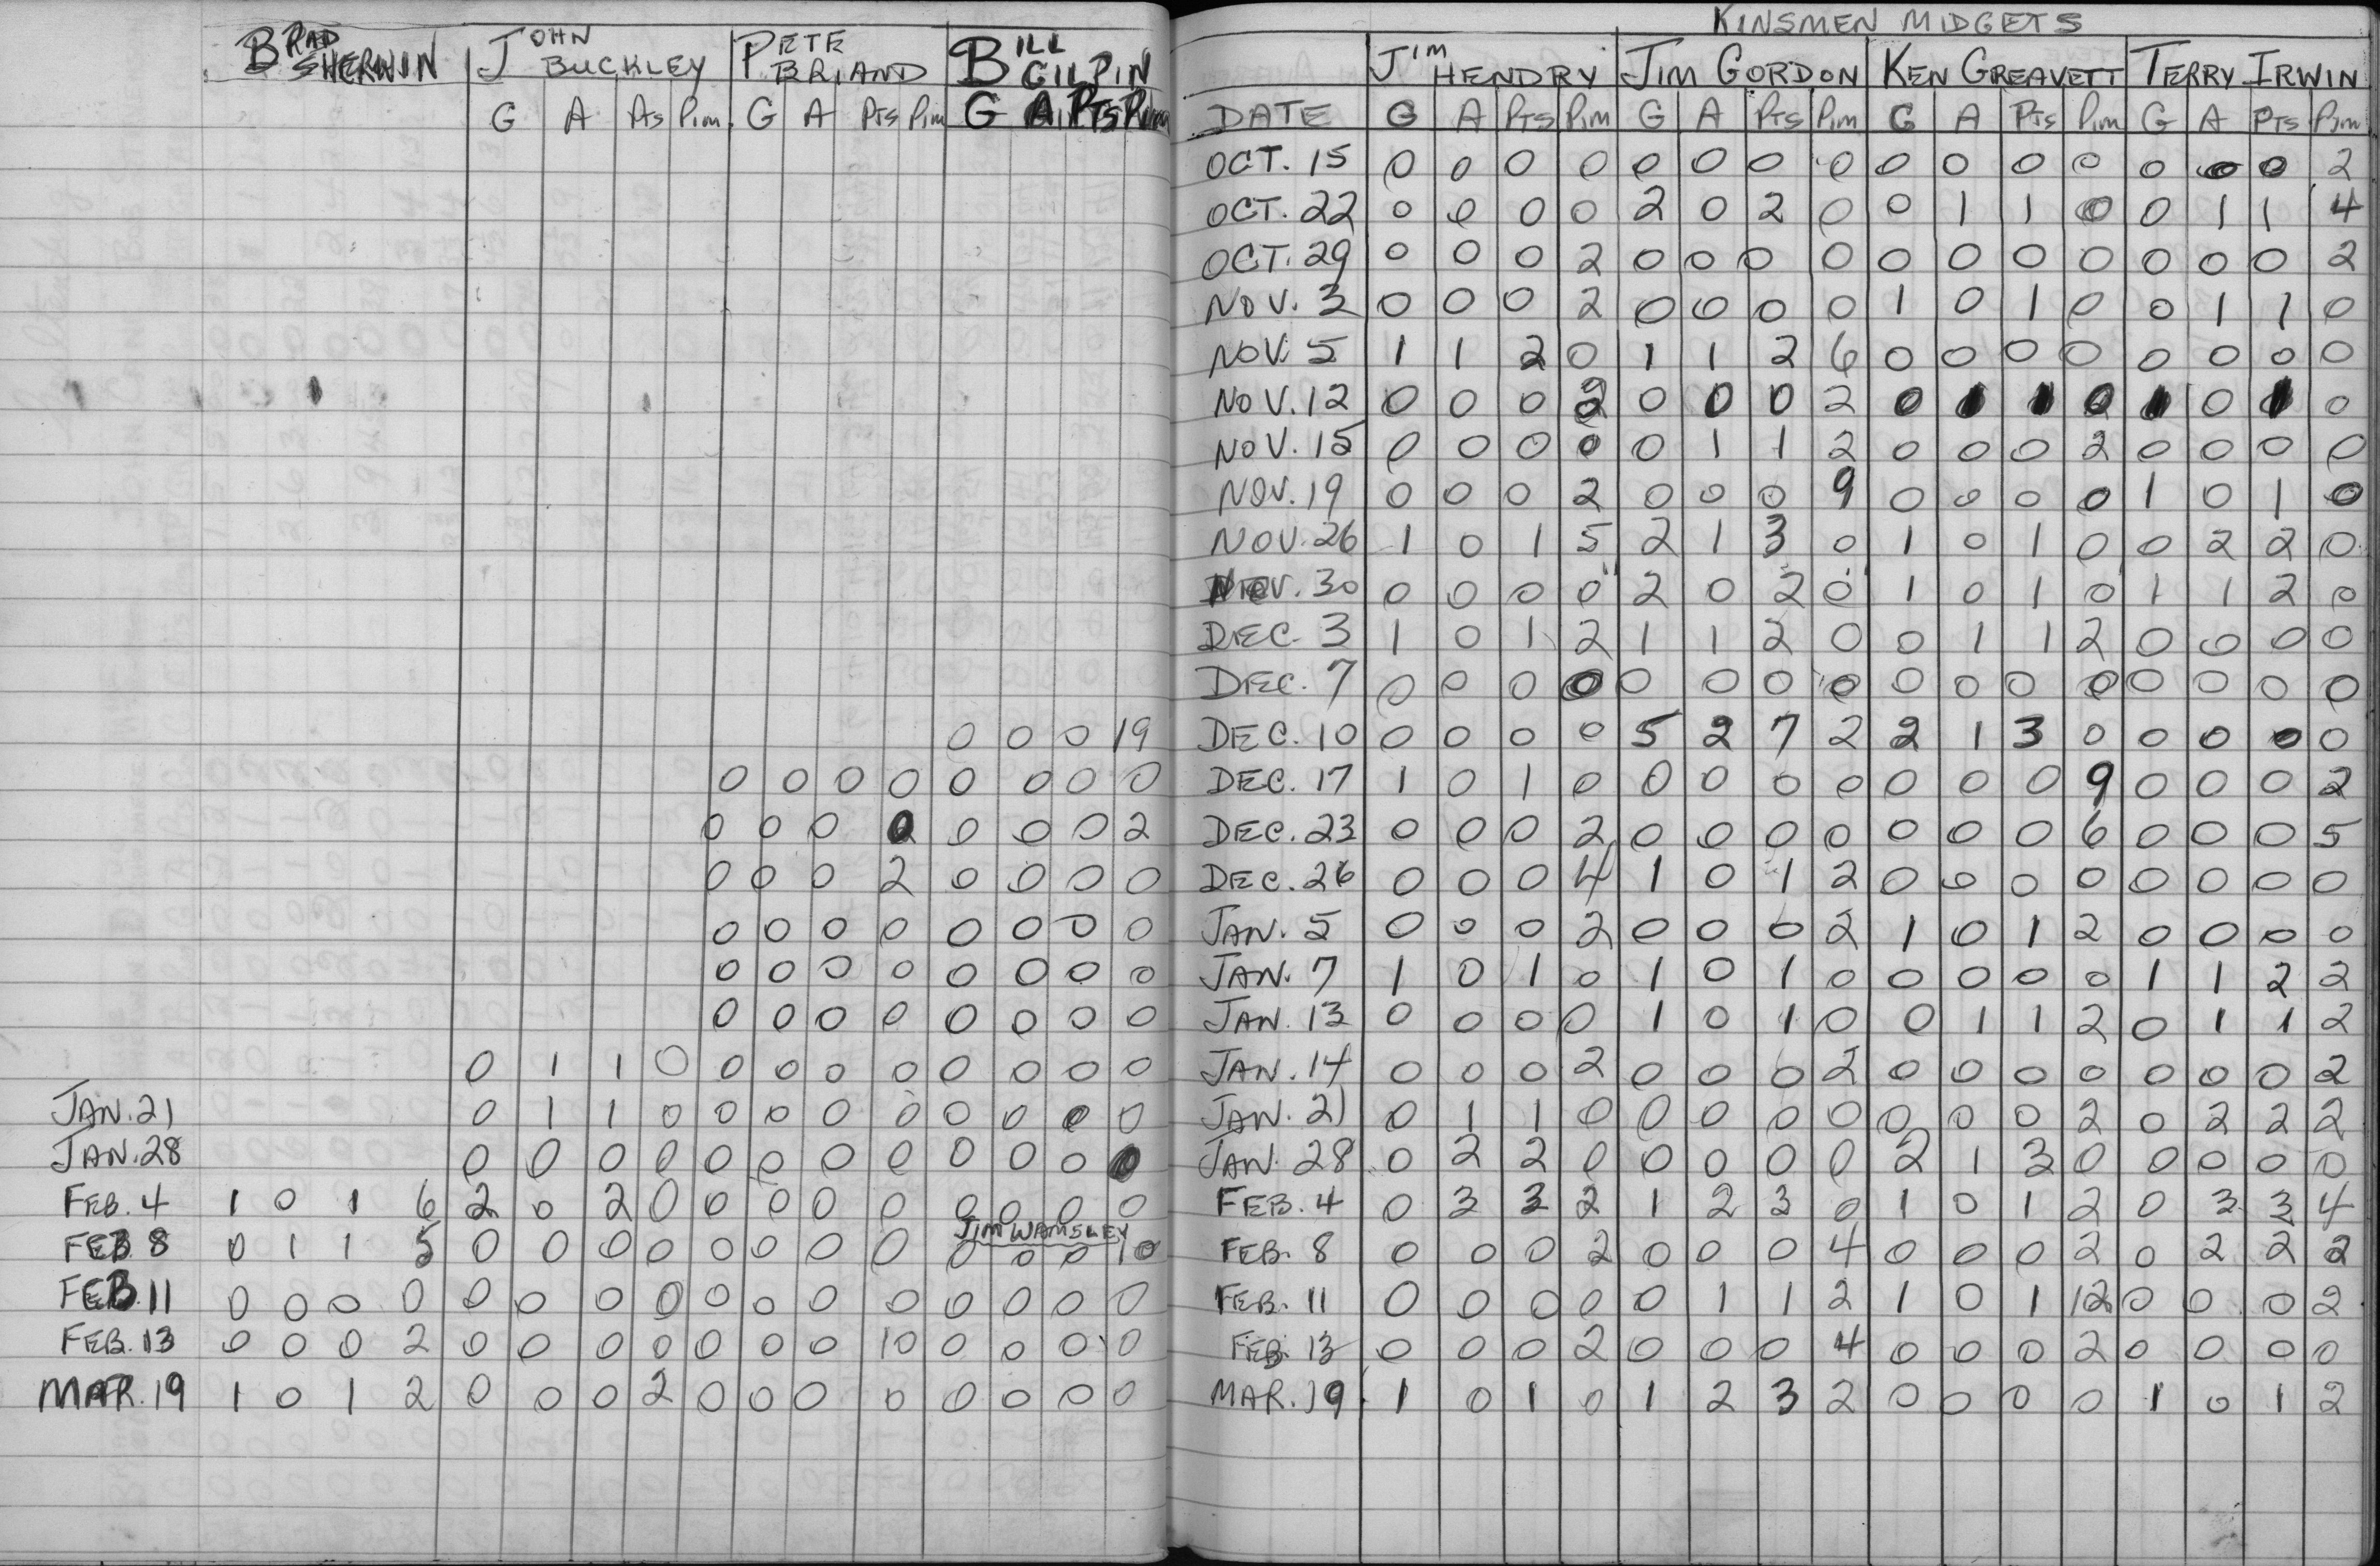 BRAD SHERWIN JOHN BUCKLEY PETE BRIAND BILL GILPIN
G A Pts Pim G A Pts Pim G A Pts Pim
0 0 0 19
0 0 0 0 0 0 0 0
0 0 0 0 0 0 0 2
0 0 0 2 0 0 0 0
0 0 0 0 0 0 0 0
0 0 0 0 0 0 0 0
0 0 0 0 0 0 0 0
0 1 1 0 0 0 0 0 0 0 0 0
JAN. 21 0 1 1 0 0 0 0 0 0 0 0 0
JAN. 28 0 0 0 0 0 0 0 0 0 0 0 0
FEB. 4 1 0 1 6 2 0 2 0 0 0 0 0 0 0 0 0
JIM WAMSLEY
FEB 8 0 1 1 5 0 0 0 0 0 0 0 0 0 0 0 10
FEB. 11 0 0 0 0 0 0 0 0 0 0 0 0 0 0 0 0
FEB. 13 0 0 0 2 0 0 0 0 0 0 0 10 0 0 0 0
MAR. 19 1 0 1 2 0 0 0 2 0 0 0 0 0 0 0 0
KINSMEN MIDGETS
JIM HENDRY JIM GORDON KEN GREAVETT TERRY IRWIN
DATE G A PTS Pim G A Pts Pim G A Pts Pim G A PTS Pim
OCT. 15 0 0 0 0 0 0 0 0 0 0 0 0 0 0 0 2
OCT. 22 0 0 0 0 2 0 2 0 0 1 1 0 0 1 1 4
OCT. 29 0 0 0 2 0 0 0 0 0 0 0 0 0 0 0 2
NOV. 3 0 0 0 2 0 0 0 0 1 0 1 0 0 1 1 0
NOV. 5 1 1 2 0 1 1 2 6 0 0 0 0 0 0 0 0
NOV. 12 0 0 0 2 0 0 0 2 0 1 1 0 1 0 1 0
NOV. 15 0 0 0 0 0 1 1 2 0 0 0 2 0 0 0 0
NOV. 19 0 0 0 2 0 0 0 9 0 0 0 0 1 0 1 0
NOV. 26 1 0 1 5 2 1 3 0 1 0 1 0 0 2 2 0
NOV. 30 0 0 0 0 2 0 2 0 1 0 1 0 1 1 2 0
DEC. 3 1 0 1 2 1 1 2 0 0 1 1 2 0 0 0 0
DEC. 7 0 0 0 0 0 0 0 0 0 0 0 0 0 0 0 0
DEC. 10 0 0 0 0 5 2 7 2 2 1 3 0 0 0 0 0
DEC. 17 1 0 1 0 0 0 0 0 0 0 0 9 0 0 0 2
DEC. 23 0 0 0 2 0 0 0 0 0 0 0 6 0 0 0 5
DEC. 26 0 0 0 4 1 0 1 2 0 0 0 0 0 0 0 0
JAN. 5 0 0 0 2 0 0 0 2 1 0 1 2 0 0 0 0
JAN. 7 1 0 1 0 1 0 1 0 0 0 0 0 1 1 2 2
JAN. 13 0 0 0 0 1 0 1 0 0 1 1 2 0 1 1 2
JAN. 14 0 0 0 2 0 0 0 2 0 0 0 0 0 0 0 2
JAN. 21 0 1 1 0 0 0 0 0 0 0 0 2 0 2 2 2
JAN. 28 0 2 2 0 0 0 0 0 2 1 3 0 0 0 0 0
FEB. 4 0 3 3 2 1 2 3 0 1 0 1 2 0 3 3 4
FEB. 8 0 0 0 2 0 0 0 4 0 0 0 2 0 2 2 2
FEB. 11 0 0 0 0 0 1 1 2 1 0 1 12 0 0 0 2
FEB. 13 0 0 0 2 0 0 0 4 0 0 0 2 0 0 0 0
MAR. 19 1 0 1 0 1 2 3 2 0 0 0 0 1 0 1 2